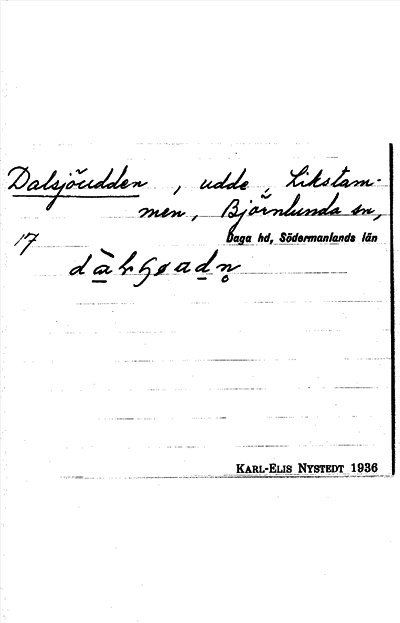 Dalsjöudden, udde, Likstam-
men, Björnlunda sn,
17 Daga hd, Södermanlands län
KARL-ELIS NYSTEDT 1936